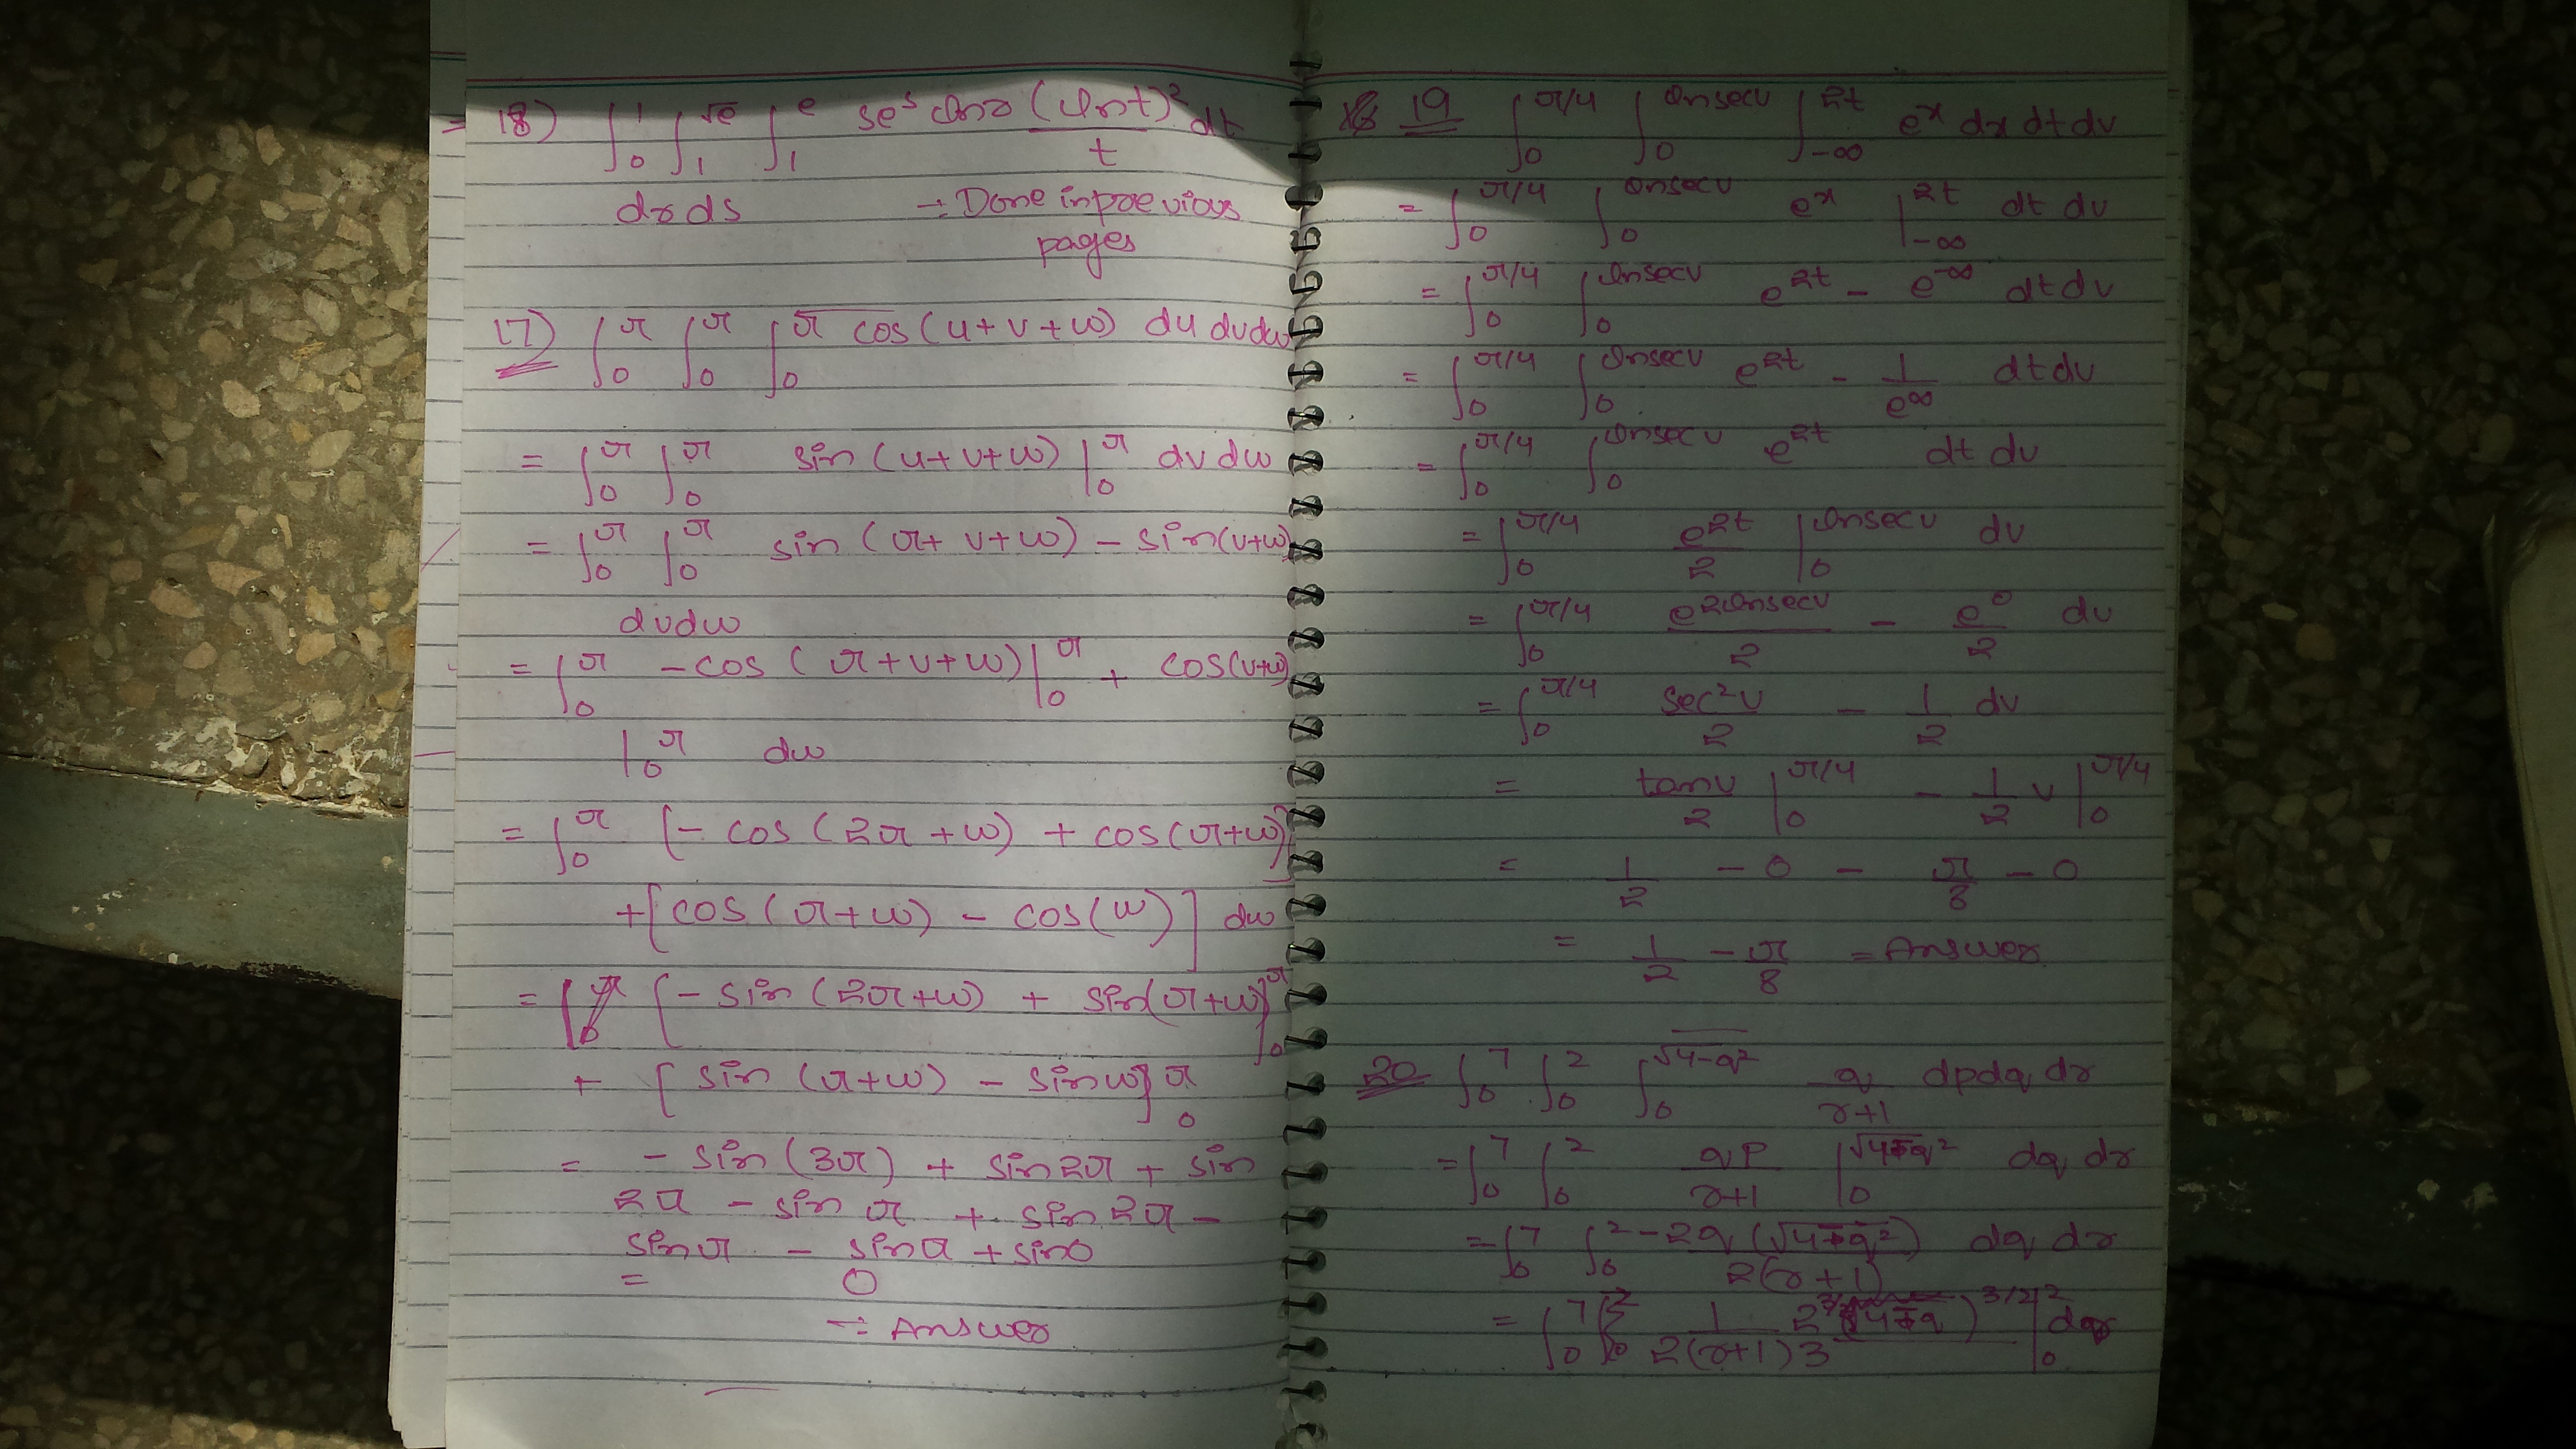 = 18) ∫₀¹ ∫₁^√e ∫₁^e se^s lnr (lnt)²/t dt
dr ds → Done in previous
pages
17) ∫₀^π ∫₀^π ∫₀^π cos(u+v+w) du dv dw
= ∫₀^π ∫₀^π sin(u+v+w) |₀^π dv dw
= ∫₀^π ∫₀^π sin(π+v+w) - sin(v+w)
dvdw
= ∫₀^π -cos(π+v+w) |₀^π + cos(v+w)
|₀^π dw
= ∫₀^π [-cos(2π+w) + cos(π+w)]
+[cos(π+w) - cos(w)] dw
= [-sin(2π+w) + sin(π+w)]₀^π
+ [sin(π+w) - sinw]₀^π
= -sin(3π) + sin2π + sin
2π - sinπ + sin2π -
sinπ - sinπ + sin0
= 0
= Answer
19 ∫₀^π/4 ∫₀^lnsecv ∫₋∞^2t e^x dx dt dv
= ∫₀^π/4 ∫₀^lnsecv e^x |₋∞^2t dt dv
= ∫₀^π/4 ∫₀^lnsecv e^2t - e^-∞ dt dv
= ∫₀^π/4 ∫₀^lnsecv e^2t - 1/e^∞ dt dv
= ∫₀^π/4 ∫₀^lnsecv e^2t dt dv
= ∫₀^π/4 e^2t/2 |₀^lnsecv dv
= ∫₀^π/4 e^2lnsecv/2 - e^0/2 dv
= ∫₀^π/4 sec²v/2 - 1/2 dv
= tanv/2 |₀^π/4 - 1/2 v |₀^π/4
= 1/2 - 0 - π/8 - 0
= 1/2 - π/8 = Answer
20 ∫₀^7 ∫₀^2 ∫₀^√4-q² q/r+1 dp dq dr
= ∫₀^7 ∫₀^2 qp/r+1 |₀^√4-q² dq dr
= ∫₀^7 ∫₀^2 -2q(√4-q²)/2(r+1) dq dr
= ∫₀^7 1/2(r+1)3 2(4-q)^3/2 |₀^2 dr